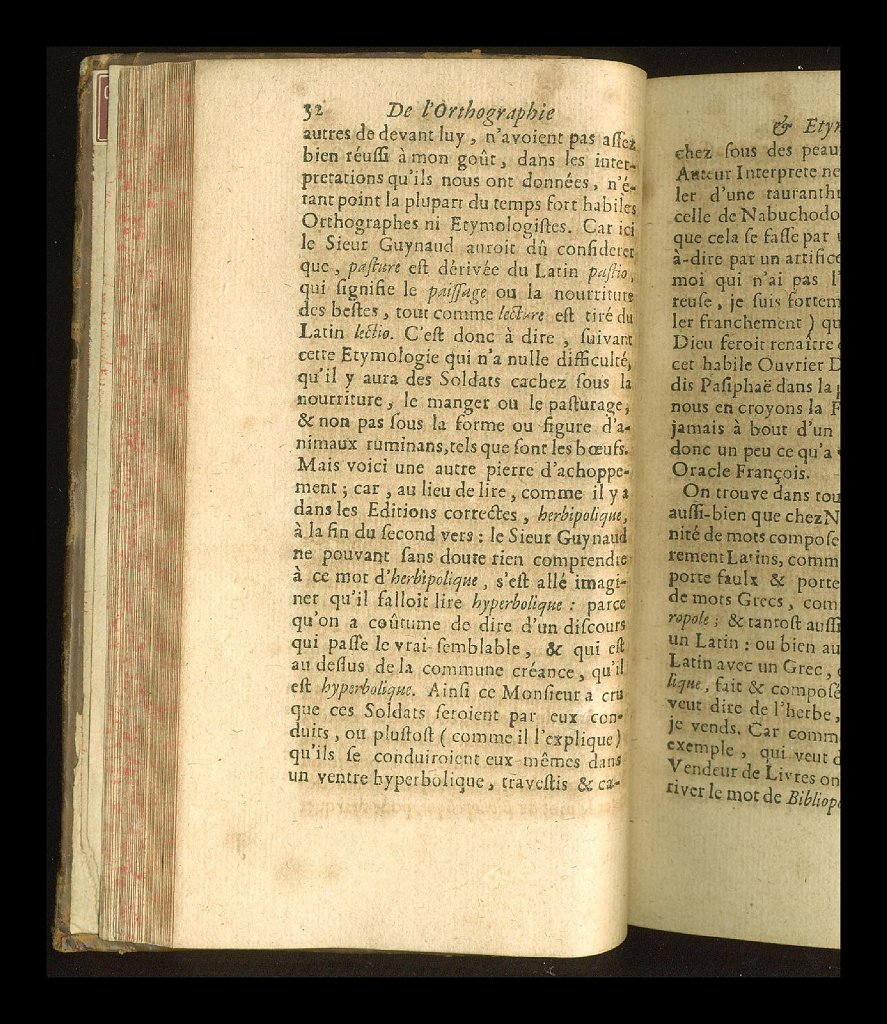 32 De l'Orthographie
autres de devant luy, n'avoient pas aſſez
bien réuſſi à mon goût, dans les inter-
pretations qu'ils nous ont données, n'é-
tant point la plupart du temps fort habiles
Orthographes ni Etymologiſtes. Car ici
le Sieur Guynaud auroit dû conſiderer
que, paſture eſt dérivée du Latin paſtio,
qui ſignifie le paiſſage ou la nourriture
des beſtes, tout comme lecture eſt tiré du
Latin lectio. C'eſt donc à dire, ſuivant
cette Etymologie qui n'a nulle difficulté,
qu'il y aura des Soldats cachez ſous la
nourriture, le manger ou le paſturage,
& non pas ſous la forme ou figure d'a-
nimaux ruminans, tels que ſont les bœufs.
Mais voici une autre pierre d'achoppe-
ment; car, au lieu de lire, comme il y a
dans les Editions correctes, herbipolique,
à la fin du ſecond vers: le Sieur Guynaud
ne pouvant ſans doute rien comprendre
à ce mot d'herbipolique, s'eſt allé imagi-
ner qu'il falloit lire hyperbolique: parce
qu'on a coûtume de dire d'un diſcours
qui paſſe le vrai-ſemblable, & qui eſt
au deſſus de la commune créance, qu'il
eſt hyperbolique. Ainſi ce Monſieur a cru
que ces Soldats ſeroient par eux con-
duits, ou pluſtoſt (comme il l'explique)
qu'ils ſe conduiroient eux-mêmes dans
un ventre hyperbolique, traveſtis & ca-
& Etym
chez ſous des peau
Auteur Interprete ne
ler d'une tauranth
celle de Nabuchodo
que cela ſe faſſe par
à-dire par un artifice
moi qui n'ai pas l'
reuſe, je ſuis fortem
ler franchement) qu
Dieu feroit renaître
cet habile Ouvrier D
dis Paſiphaë dans la
nous en croyons la F
jamais à bout d'un
donc un peu ce qu'a
Oracle François.
On trouve dans tou
auſſi-bien que chez N
nité de mots compoſe
rement Latins, comm
porte faulx & porte
de mots Grecs, com
ropole; & tantoſt auſſi
un Latin: ou bien au
Latin avec un Grec,
lique, fait & compoſé
veut dire de l'herbe,
je vends. Car comm
exemple, qui veut d
Vendeur de Livres on
river le mot de Bibliopo